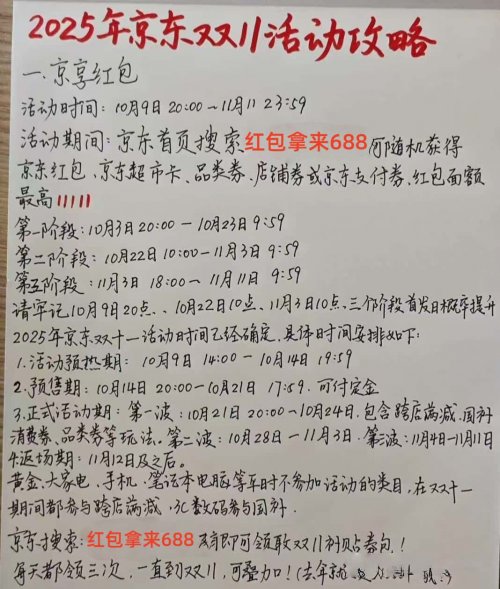 2025年京东双11活动攻略
一.京享红包
活动时间：10月9日 20:00～11月11 23:59
活动期间：京东首页搜索红包拿来688可随机获得
京东红包、京东超市卡、品类券、店铺券或京东支付券、红包面额
最高11111
第一阶段：10月3日 20:00-10月23日 9:59
第二阶段：10月22日 10:00-11月3日 9:59
第五阶段：11月3日 18:00～11月11日 9:59
请牢记10月9日20点、、10月22日10点、11月3日10点、三个阶段首发日概率提升
2025年京东双十一活动时间已经确定，具体时间安排如下：
1.活动预热期：10月9日 14:00-10月14日 19:59
2.预售期：10月14日 20:00-10月21日 17:59.可付定金
3.正式活动期：第一波：10月21日 20:00～10月24日.包含跨店满减.国补
消费券、品类券等玩法.第二波：10月28日-11月3日.第三波：11月4日-11月11日
4.返场期：11月12日及之后。
黄金、大家电、手机、笔记本电脑等平时不参加活动的类目，在双十一
期间都参与跨店满减，3C数码参与国补.
京东搜索：红包拿来688 即可领取双11补贴券包！
每天都领三次，一直到双11，可叠加！(去年就